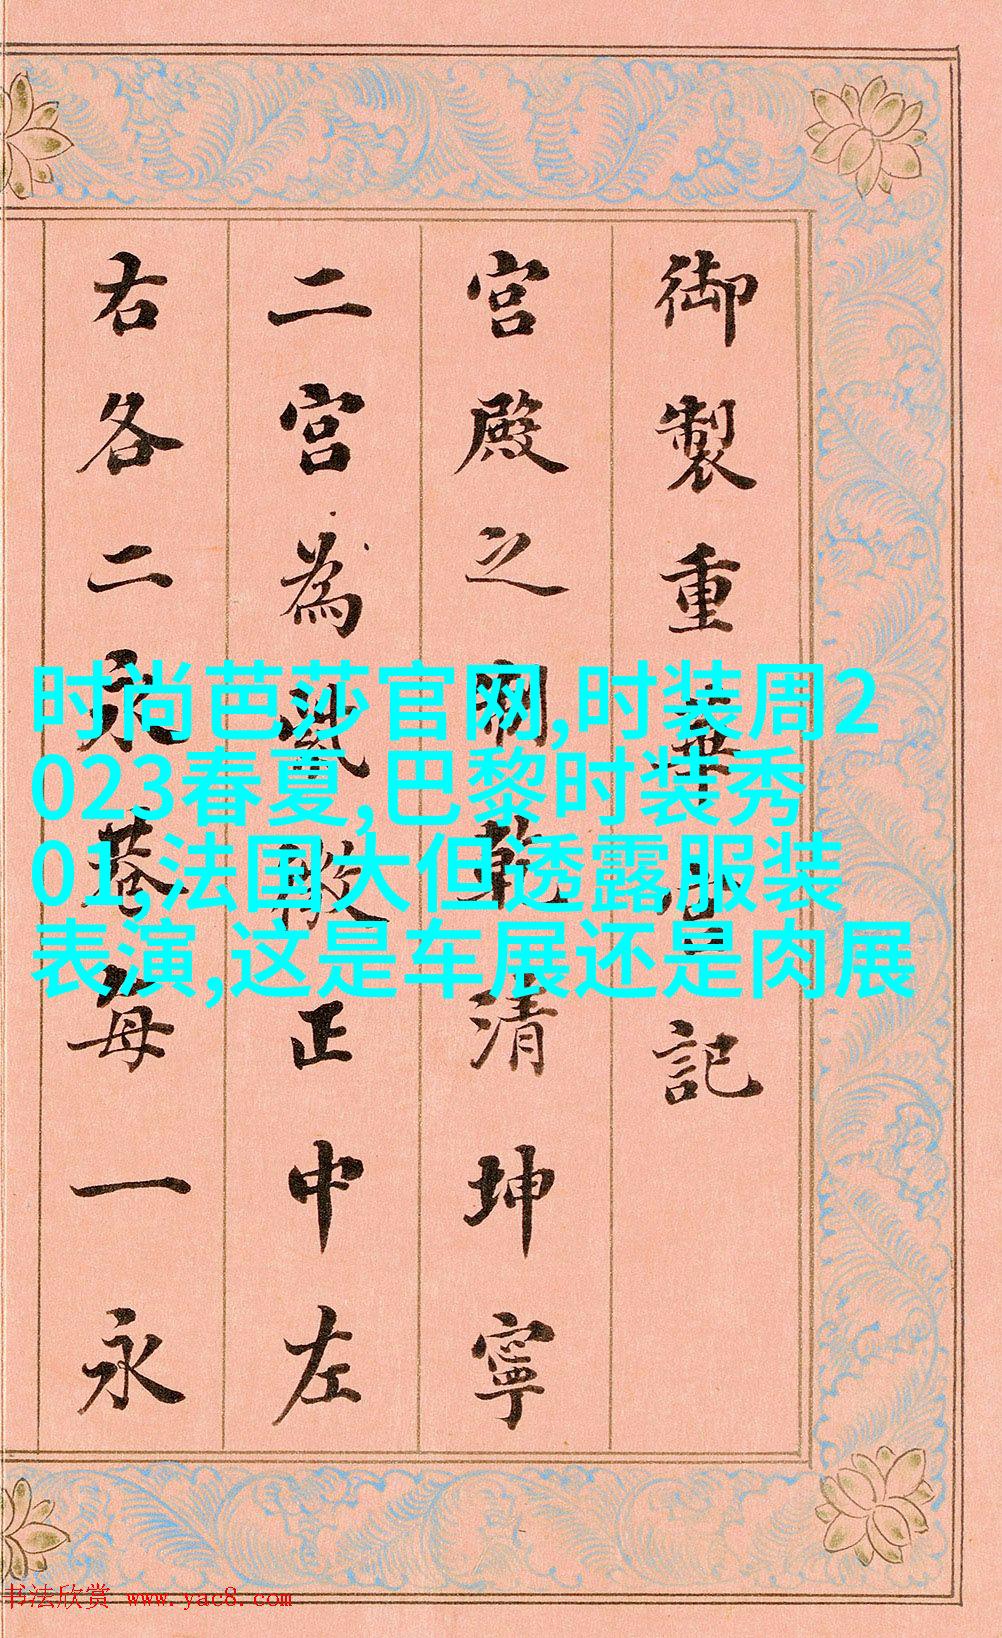 御製重華宮記
宮殿之制乾清坤寧
二宮為紫微正中左
右各二永巷每一永
时尚芭莎官网,时装周2
023春夏,巴黎时装秀
01,法国大但透露服装
表演,这是车展还是肉展
书法欣赏 www.yac8.com